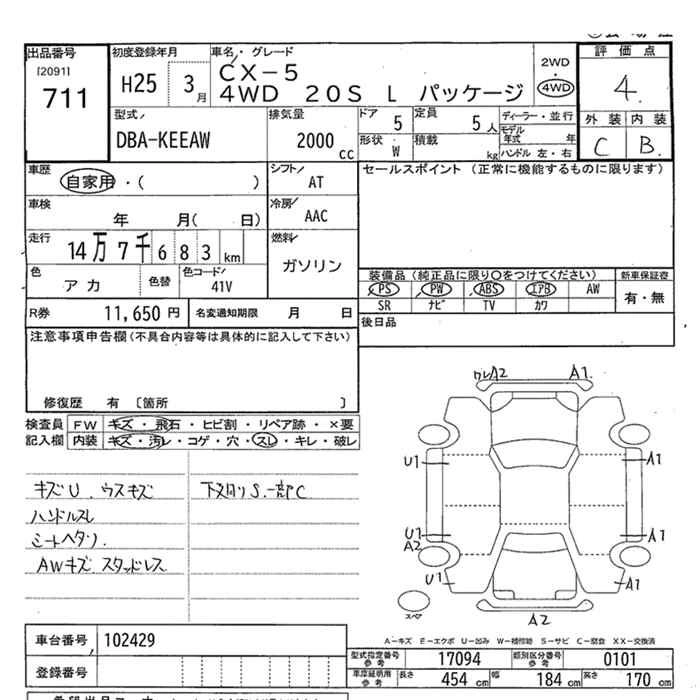 出品番号
(2091)
711
初度登録年月
H25 3月
車名・グレード
CX-5
4WD 20S L パッケージ
2WD
・
4WD
評価点
4.
外装 内装
C B.
型式
DBA-KEEAW
排気量
2000 cc
ドア 5
定員 5人
ディーラー・並行
形状 W
積載 kg
モデル年式 年
ハンドル 左・右
車歴
自家用・( )
シフト AT
セールスポイント (正常に機能するものに限ります)
車検
年 月( 日)
冷房 AAC
走行
14万7千683km
燃料 ガソリン
色 アカ
色替
色コード 41V
装備品(純正品に限り○をつけてください)
新車保証書
PS PW ABS エアB AW
有・無
SR ナビ TV カワ
R券 11,650円
名変通知期限 月 日
後日品
注意事項申告欄(不具合内容等は具体的に記入して下さい)
修復歴 有 〔箇所 〕
検査員記入欄
FW キズ・飛石・ヒビ割・リペア跡・×要
内装 キズ・汚レ・コゲ・穴・スレ・キレ・破レ
キズU.ウスキズ
下廻りS.一部C
ハンドルスレ
シートヘタリ.
AWキズ スタッドレス
ワレA2 A1.
U1 A1
U1 A1
A2
U1 A1
スペア
A2
A-キズ E-エクボ U-凹み W-補修跡 S-サビ C-腐食 XX-交換済
車台番号 102429
型式指定番号 参考 17094
類別区分番号 参考 0101
登録番号
車庫証明用 参考 長さ 454 cm 幅 184 cm 高さ 170 cm